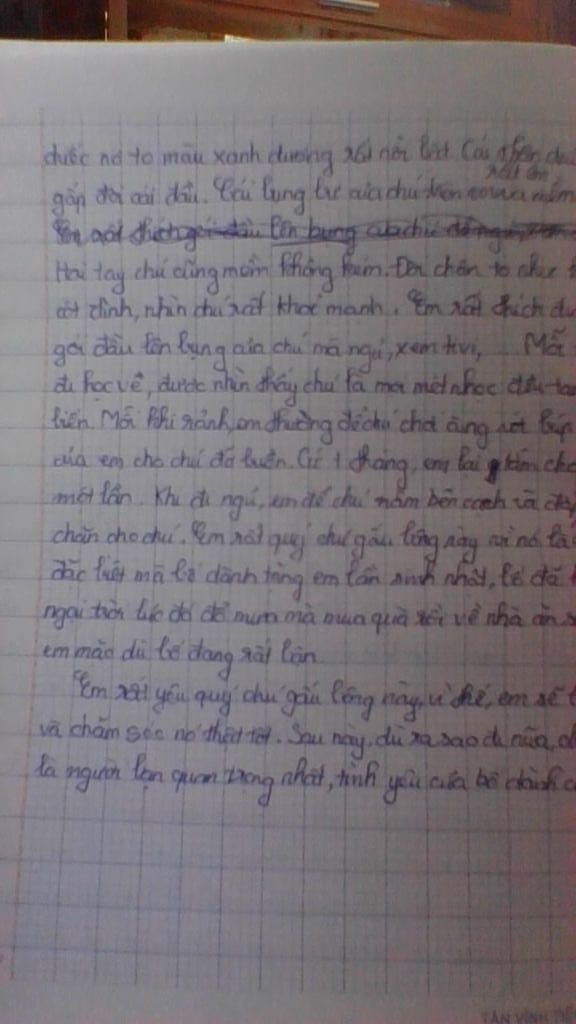 chiếc nơ to màu xanh dương rất nổi bật. Cái thân
rất êm
gấp đôi cái đầu. Cái bụng bự của chú mềm
Em rất thích gối đầu lên bụng của chú để ngủ
Hai tay chú cũng mềm không kém. Đôi chân to như
cột đình, nhìn chú rất khoẻ mạnh. Em rất thích
gối đầu lên bụng của chú mà ngủ, xem tivi, Mỗi
đi học về, được nhìn thấy chú là mọi mệt nhọc đều tan
biến. Mỗi khi rảnh, em thường để chú chơi cùng với búp
của em cho chú đỡ buồn. Cứ 1 tháng, em lại tắm cho
một lần. Khi đi ngủ, em để chú nằm bên cạnh và đắp
chăn cho chú. Em rất quý chú gấu bông này vì nó là
đặc biệt mà bố dành tặng em lần sinh nhật, bố đã
ngại trời lúc đó đổ mưa mà mua quà rồi về nhà ăn
em mặc dù bố đang rất bận.
Em rất yêu quý chú gấu bông này, vì thế, em sẽ
và chăm sóc nó thật tốt. Sau này, dù ra sao đi nữa,
là người bạn quan trọng nhất, tình yêu của bố dành
TÂN VĨNH TIẾ